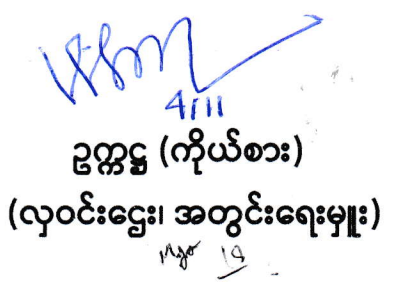 4/11
ဥက္ကဋ္ဌ (ကိုယ်စား)
(လှဝင်းဌေး၊ အတွင်းရေးမှူး)